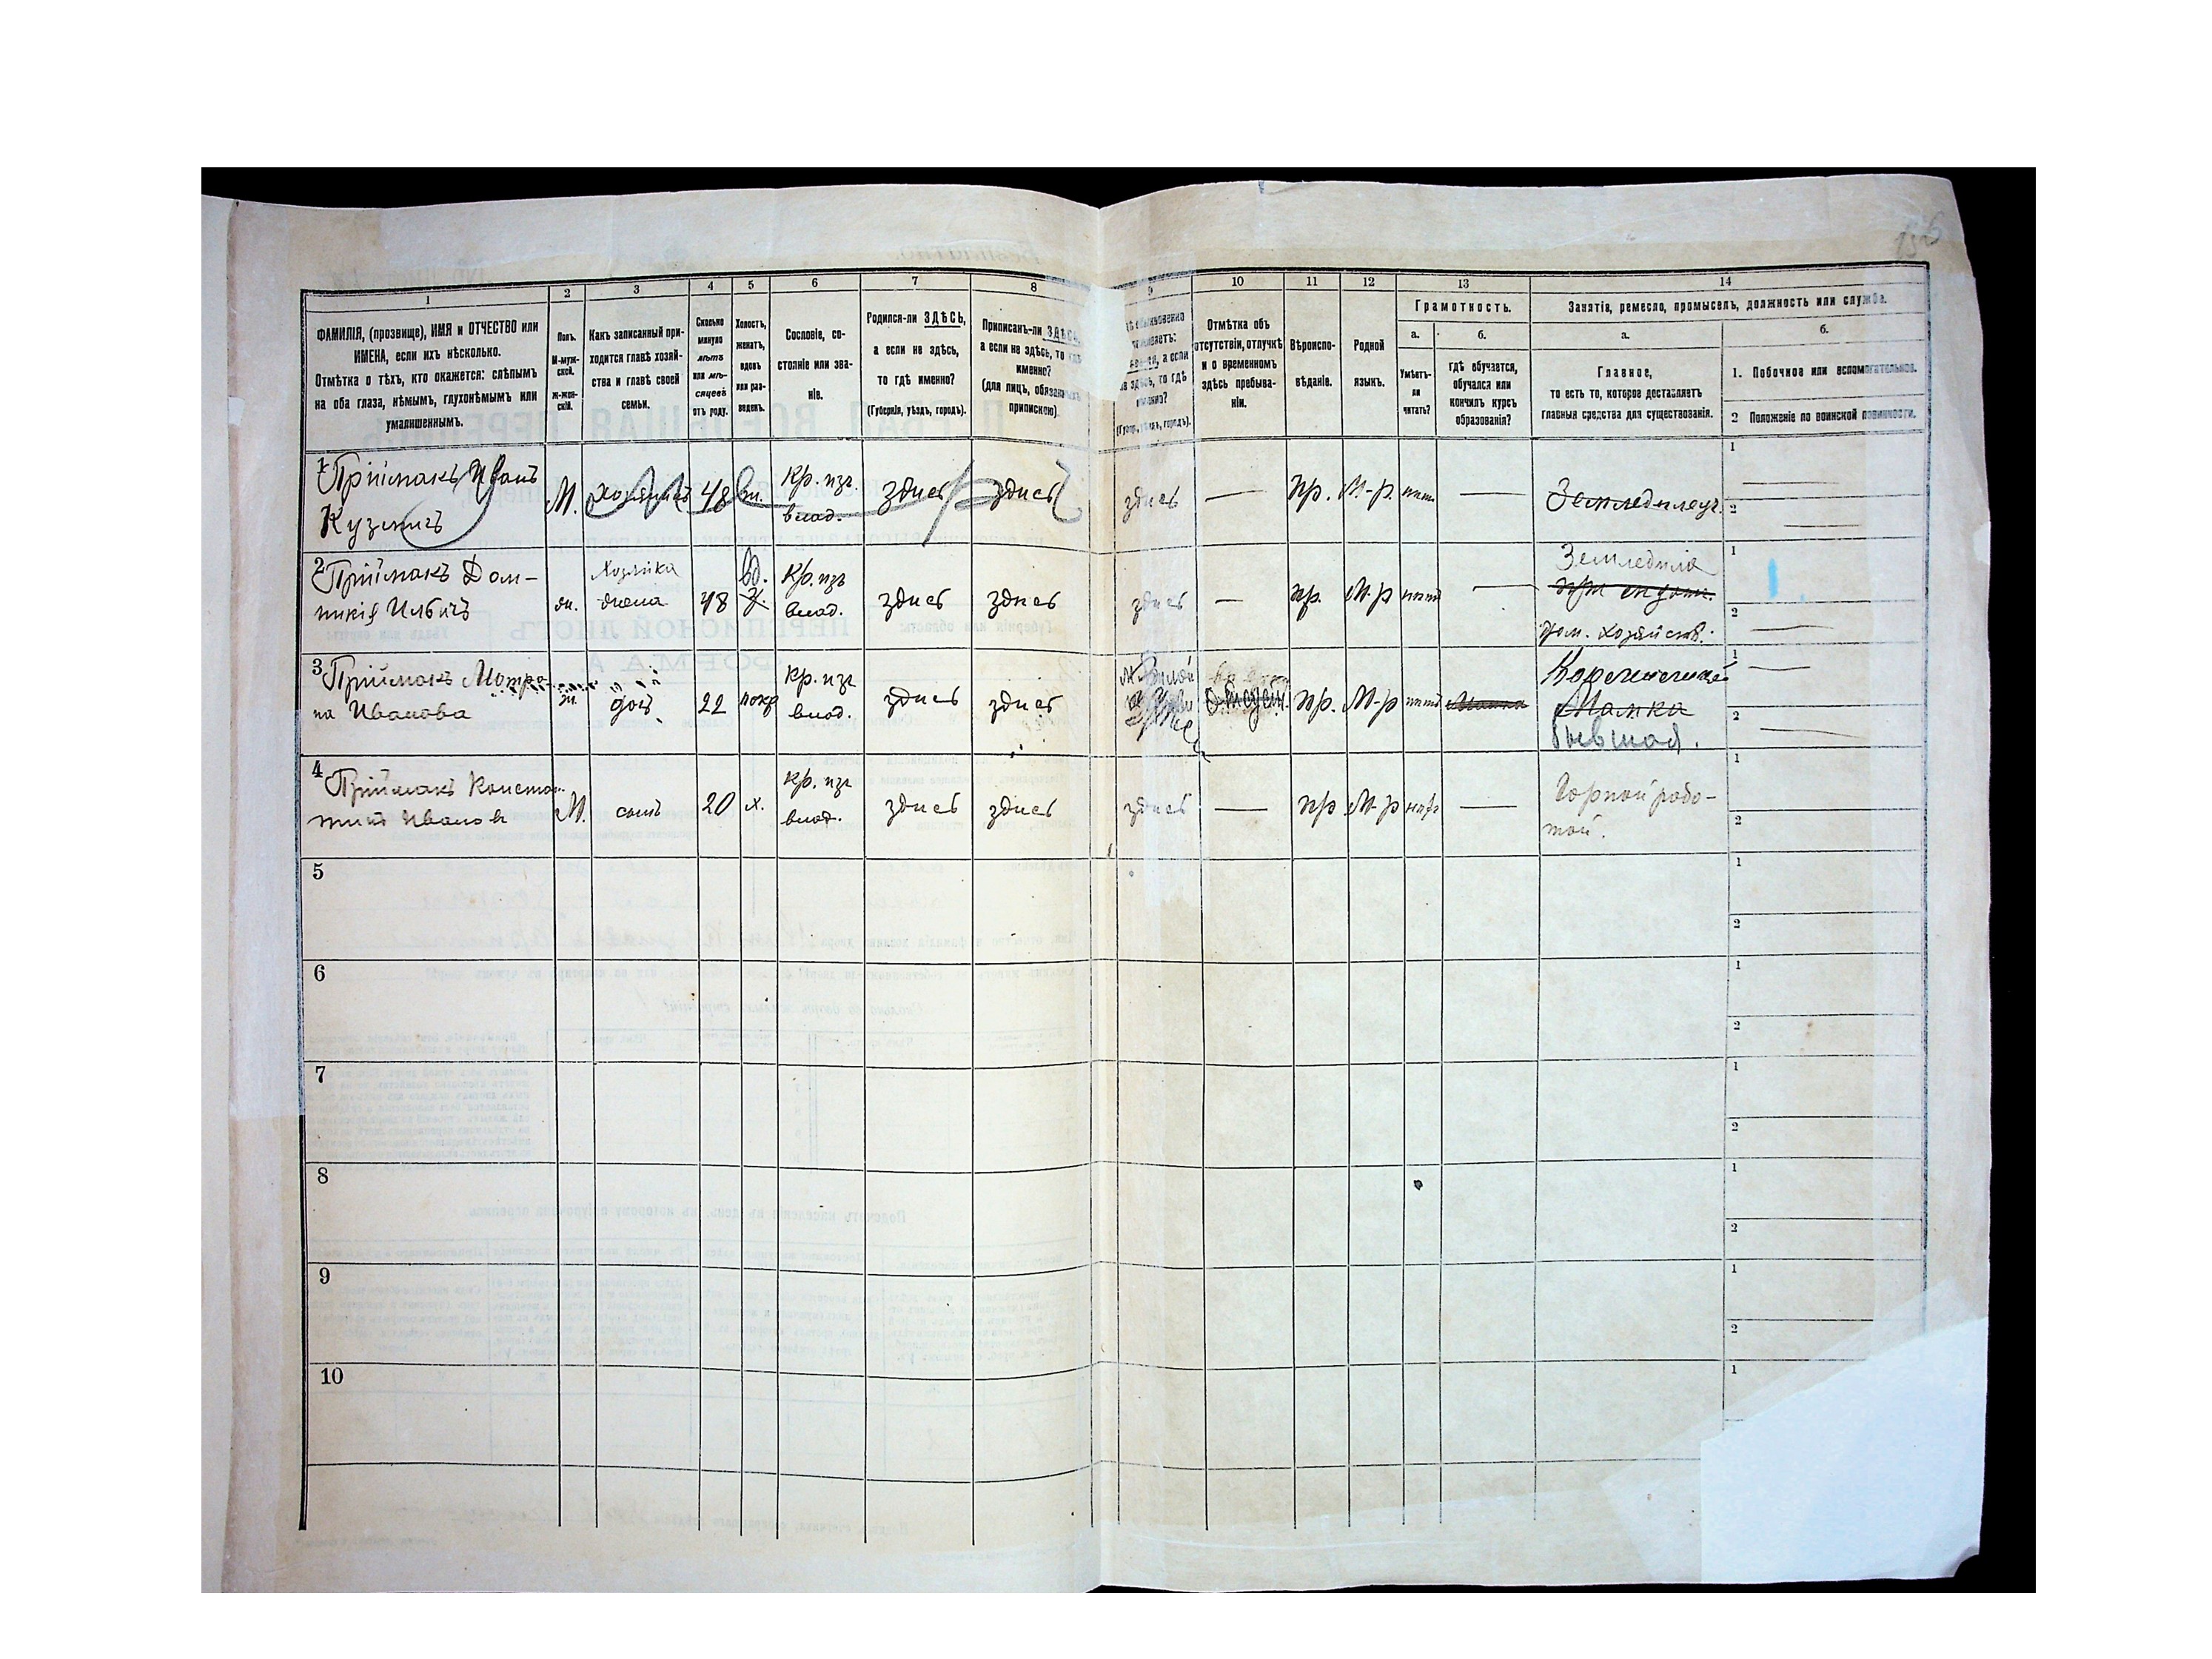 1
ФАМИЛІЯ, (прозвище), ИМЯ и ОТЧЕСТВО или
ИМЕНА, если ихъ нѣсколько.
Отмѣтка о тѣхъ, кто окажется: слѣпымъ
на оба глаза, нѣмымъ, глухонѣмымъ или
умалишеннымъ.
2
Полъ.
М-муж-
ской.
ж-жен-
скій.
3
Какъ записанный при-
ходится главѣ хозяй-
ства и главѣ своей
семьи.
4
Сколько
минуло
лѣтъ
или мѣ-
сяцевъ
отъ роду.
5
Холостъ,
женатъ,
вдовъ
или раз-
веденъ.
6
Сословіе, со-
стояніе или зва-
ніе.
7
Родился-ли ЗДѢСЬ,
а если не здѣсь,
то гдѣ именно?
(Губернія, уѣздъ, городъ).
8
Приписанъ-ли ЗДѢСЬ,
а если не здѣсь, то гдѣ
именно?
(для лицъ, обязанныхъ
припискою).
9
а если
не здѣсь, то гдѣ
именно?
(Губер., уѣздъ, городъ).
10
Отмѣтка объ
отсутствіи, отлучкѣ
и о временномъ
здѣсь пребыва-
ніи.
11
Вѣроиспо-
вѣданіе.
12
Родной
языкъ.
13
Грамотность.
а.
Умѣетъ-
ли
читать?
б.
гдѣ обучается,
обучался или
кончилъ курсъ
образованія?
14
Занятія, ремесло, промыселъ, должность или служба.
а.
Главное,
то есть то, которое доставляетъ
главныя средства для существованія.
б.
1. Побочное или вспомогательное.
2 Положеніе по воинской повинности.
1 Приймакъ Иванъ
Кузмичъ
М. Хозяинъ 48 Кр. изъ
влад. здись здись здись — пр. М-р. нит — Земледилецъ.
1
2
2 Приймакъ Дом-
никія Ильичъ
жн. Хозяйка
жена 48 вд. Кр. изъ
влад. здись здись здись — пр. М-р нит — Земледиліе
дом. хозяйств.
1
2
3 Приймакъ Мотро-
на Иванова
жн. доч. 22 Кр. изъ
влад. здись здись пр. М-р нит Мамка
Мамка
бывшая.
1
2
4 Приймакъ Констан-
тинъ Иванов
М. сынъ 20 х. Кр. изъ
влад. здись здись здись — пр М-р —
Горной рабо-
той.
1
2
5
1
2
6
1
2
7
1
2
8
1
2
9
1
2
10
1